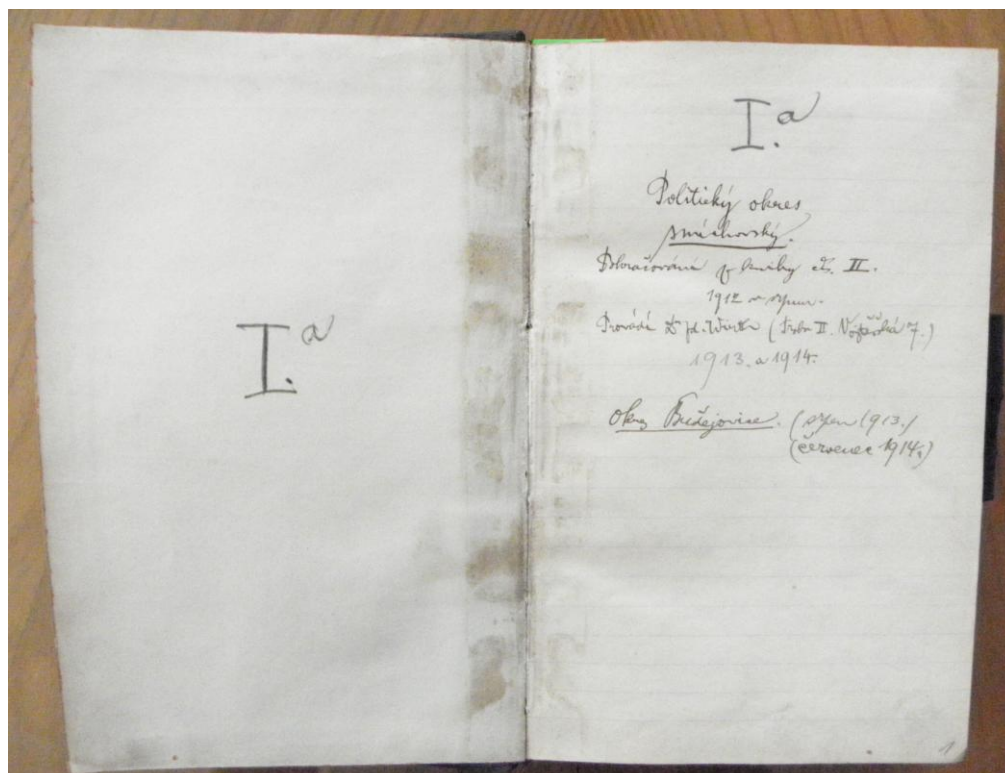 I.a
I.a
Politický okres
smíchovský.
Pokračování z knihy čís. II.
1912 v srpnu.
Provádí Zd. Wirth (Praha II. 7.)
1913. a 1914.
Okres Budějovice. (srpen 1913.)
(červenec 1914.)
1